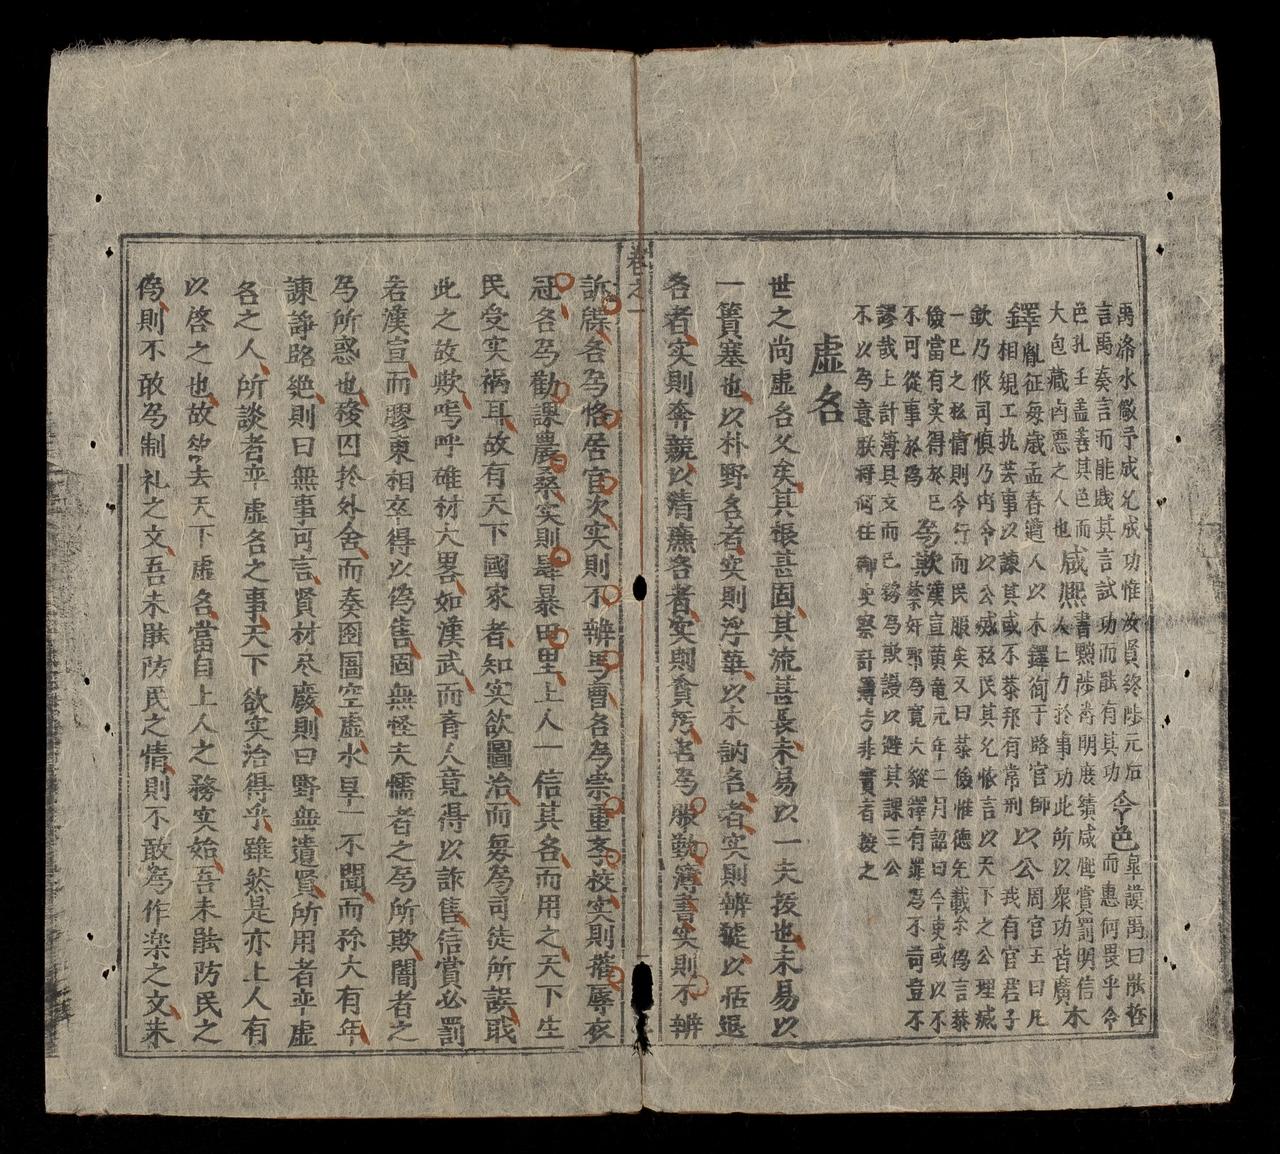 禹洛水儆予成允成功惟汝賢終陟元后 令色 皐謨禹曰能哲
言禹奏言而能践其言試功而能有其功 而惠何畏乎令
色孔壬盖善其色而 咸熙 書黜陟幽明庶績咸熙賞罰明信
大包藏凶惡之人也 人上力於事功此所以衆功皆廣 木
鐸 胤征每歲孟春遒人以木鐸徇于路官師 以公 周官王曰凡
相規工执芸事以諫其或不恭邦有常刑 我有官君子
欽乃攸司慎乃出令以公滅私民其允懷言以天下之公理滅
一己之私情則令行而民服矣又曰恭儉惟德无載尔偽言恭
儉當有实得於己 為欺 漢宣黄竜元年二月詔曰今吏或以不
不可從事於偽 禁奸邪為寛大縱釋有罪為不苛豈不
謬哉上計簿具文而已務為欺謾以避其課三公
不以為意朕將何任御史察計簿方非實者按之
虚名
世之尚虚名久矣其根甚固其流甚長未易以一夫拔也未易以
一簣塞也以朴野名者实則浮華以木訥名者实則辨號以恬退
名者实則奔競以清廉名者实則貪汚名為服勤簿書实則不辨
訴牒名為恪居官次实則不辨馬曹名為崇重孝校实則摧辱衣
冠名為勧課農桑实則肆暴田里上人一信其名而用之天下生
民受实禍耳故有天下國家者知实欲圖治而毋為司徒所誤哉
此之故欺嗚呼碓材大畧如漢武而育人竟得以詐售信賞必罰
若漢宣而膠東相卒得以偽售固無怪夫懦者之為所欺闇者之
為所惑也稷囚於外舍而奏囹圄空虚水旱一不聞而称大有年
諌諍路絶則曰無事可言賢材尽廢則曰野無遺賢所用者乎虚
名之人所談者乎虚名之事天下欲实治得乎雖然是亦上人有
以啓之也故欲去天下虚名當自上人之務实始吾未能防民之
偽則不敢為制礼之文吾未能防民之情則不敢為作楽之文未
卷之一